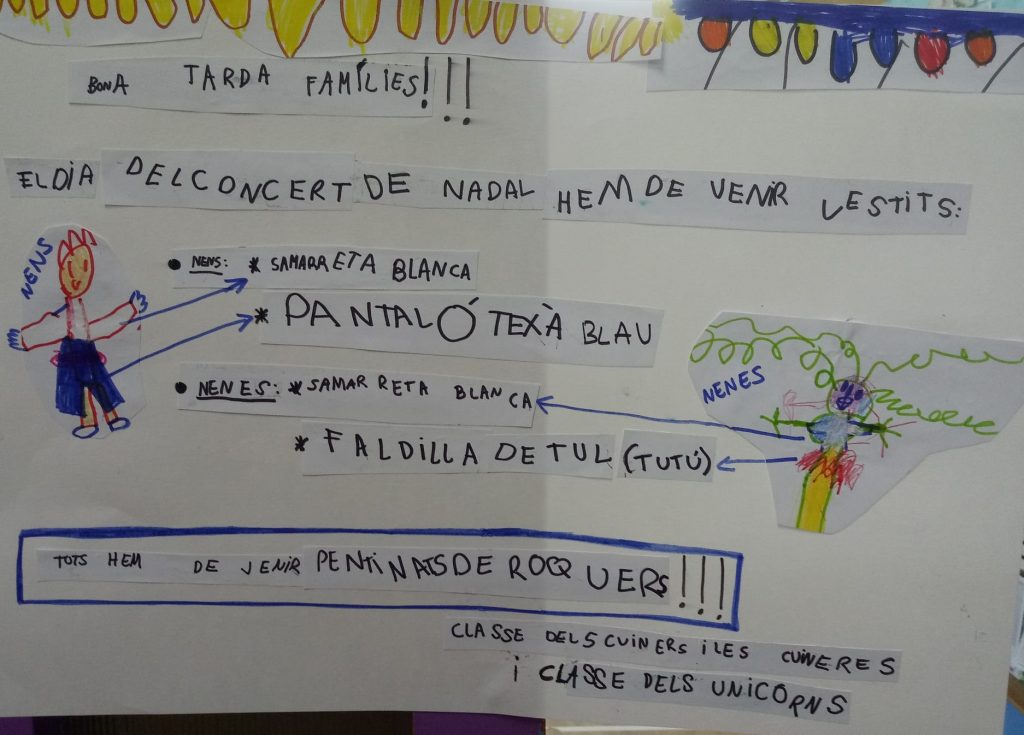 BONA TARDA FAMÍLIES!!!
EL DIA DEL CONCERT DE NADAL HEM DE VENIR VESTITS:
NENS
• NENS: * SAMARRETA BLANCA
* PANTALÓ TEXÀ BLAU
NENES
• NENES: * SAMARRETA BLANCA
* FALDILLA DE TUL (TUTÚ)
TOTS HEM DE VENIR PENTINATS DE ROCQUERS!!!
CLASSE DELS CUINERS I LES CUINERES
I CLASSE DELS UNICORNS